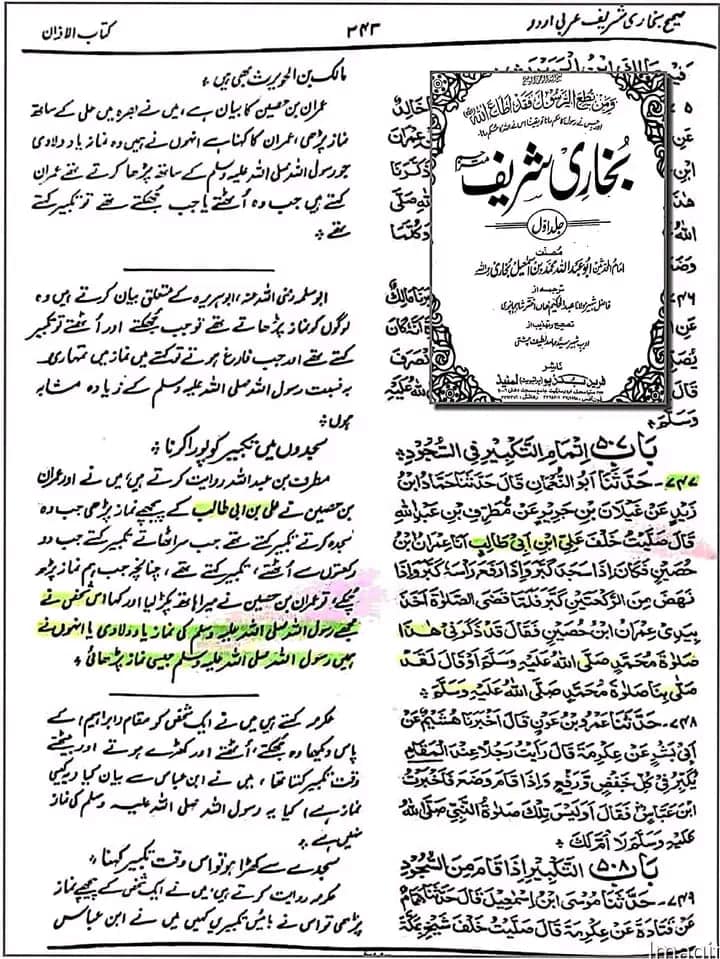 صحیح بخاری شریف عربی اردو
۲۴۳
کتاب الاذان
مالک بن الحویرث بھی ہیں ؞
عمران بن حصین کا بیان ہے، میں نے بصرہ میں علی کے ساتھ
نماز پڑھی، عمران کا کہنا ہے انہوں نے ہمیں وہ نماز یاد دلادی
جو رسول اللہ صلی اللہ علیہ وسلم کے ساتھ پڑھا کرتے تھے عمران
کہتے ہیں جب وہ اُٹھتے یا جب جُھکتے تھے تو تکبیر کہتے
تھے ؞
ابو سلمہ رضی اللہ عنہ، ابوہریرہ کے متعلق بیان کرتے ہیں وہ
لوگوں کو نماز پڑھاتے تھے تو جب جُھکتے اور اُٹھتے تو تکبیر
کہتے تھے اور جب فارغ ہوتے تو کہتے میں نماز میں تمہاری
بہ نسبت رسول اللہ صلی اللہ علیہ وسلم کے زیادہ مشابہ
ہوں ؞
سجدوں میں تکبیر کو پورا کرنا ؞
مطرف بن عبداللہ روایت کرتے ہیں، میں نے اور عمران
بن حصین نے علی بن ابی طالب کے پیچھے نماز پڑھی جب وہ
سجدہ کرتے تکبیر کہتے تھے جب سر اٹھاتے تکبیر کہتے جب دو
رکعتوں سے اُٹھتے، تکبیر کہتے تھے، چنانچہ جب ہم نماز پڑھ
چکے، تو عمران بن حصین نے میرا ہاتھ پکڑ لیا اور کہا اس شخص نے
مجھے رسول اللہ صلی اللہ علیہ وسلم کی نماز یاد دلادی یا انہوں نے
ہمیں رسول اللہ صلی اللہ علیہ وسلم جیسی نماز پڑھائی ؞
عکرمہ کہتے ہیں میں نے ایک شخص کو مقام (ابراہیم) کے
پاس دیکھا وہ جُھکتے، اُٹھتے اور کھڑے ہوتے اور بیٹھتے
وقت تکبیر کہتا تھا، میں نے ابن عباس سے بیان کیا (یہ کیسی
نماز ہے)، کہا یہ رسول اللہ صلی اللہ علیہ وسلم کی نماز
نہیں ہے ؞
سجدے سے کھڑا ہو تو اس وقت تکبیر کہنا ؞
عکرمہ روایت کرتے ہیں، میں نے ایک شخص کے پیچھے نماز
پڑھی تو اس نے بائیس تکبیریں کہیں میں نے ابن عباس
وَمَنْ يُطِعِ الرَّسُوْلَ فَقَدْ اَطَاعَ اللّٰهَ
بُخاری شریف
مترجم
جلد اوّل
مصنف
امام المحدثین ابو عبد اللہ محمد بن اسمٰعیل بخاری رحمۃ اللہ
ترجمہ از
فاضل شہیر مولانا عبدالحکیم خاں اختر شاہجہانپوری
تصحیح و تہذیب از
ناشر
فرید بکڈپو (پرائیویٹ) لمیٹڈ
وَسَلَّمَ ؞
بَابُ ۵۰۷ اِتْمَامِ التَّكْبِيْرِ فِي السُّجُوْدِ ؞
۷۴۷ - حَدَّثَنَا اَبُو النُّعْمَانِ قَالَ حَدَّثَنَا حَمَّادُ ابْنُ
زَيْدٍ عَنْ غَيْلَانَ بْنِ جَرِيْرٍ عَنْ مُطَرِّفِ بْنِ عَبْدِ اللّٰهِ
قَالَ صَلَّيْتُ خَلْفَ عَلِيِّ ابْنِ اَبِيْ طَالِبٍ اَنَا وَعِمْرَانُ بْنُ
حُصَيْنٍ فَكَانَ اِذَا سَجَدَ كَبَّرَ وَاِذَا رَفَعَ رَاْسَهٗ كَبَّرَ وَاِذَا
نَهَضَ مِنَ الرَّكْعَتَيْنِ كَبَّرَ فَلَمَّا قَضَى الصَّلٰوةَ اَخَذَ
بِيَدِيْ عِمْرَانُ ابْنُ حُصَيْنٍ فَقَالَ قَدْ ذَكَّرَنِيْ هٰذَا
صَلٰوةَ مُحَمَّدٍ صَلَّى اللّٰهُ عَلَيْهِ وَسَلَّمَ اَوْ قَالَ لَقَدْ
صَلّٰى بِنَا صَلٰوةَ مُحَمَّدٍ صَلَّى اللّٰهُ عَلَيْهِ وَسَلَّمَ ؞
۷۴۸ - حَدَّثَنَا عَمْرُو بْنُ عَوْنٍ قَالَ اَخْبَرَنَا هُشَيْمٌ عَنْ
اَبِيْ بِشْرٍ عَنْ عِكْرِمَةَ قَالَ رَاَيْتُ رَجُلًا عِنْدَ الْمَقَامِ
يُكَبِّرُ فِيْ كُلِّ خَفْضٍ وَّرَفْعٍ وَاِذَا قَامَ وَاِذَا وَضَعَ فَاَخْبَرْتُ
ابْنَ عَبَّاسٍ فَقَالَ اَوَلَيْسَ تِلْكَ صَلٰوةُ النَّبِيِّ صَلَّى اللّٰهُ
عَلَيْهِ وَسَلَّمَ لَا اُمَّ لَكَ ؞
بَابُ ۵۰۸ التَّكْبِيْرِ اِذَا قَامَ مِنَ السُّجُوْدِ
۷۴۹ - حَدَّثَنَا مُوْسَى ابْنُ اِسْمٰعِيْلَ قَالَ حَدَّثَنَا هَمَّامٌ
عَنْ قَتَادَةَ عَنْ عِكْرِمَةَ قَالَ صَلَّيْتُ خَلْفَ شَيْخٍ بِمَكَّةَ